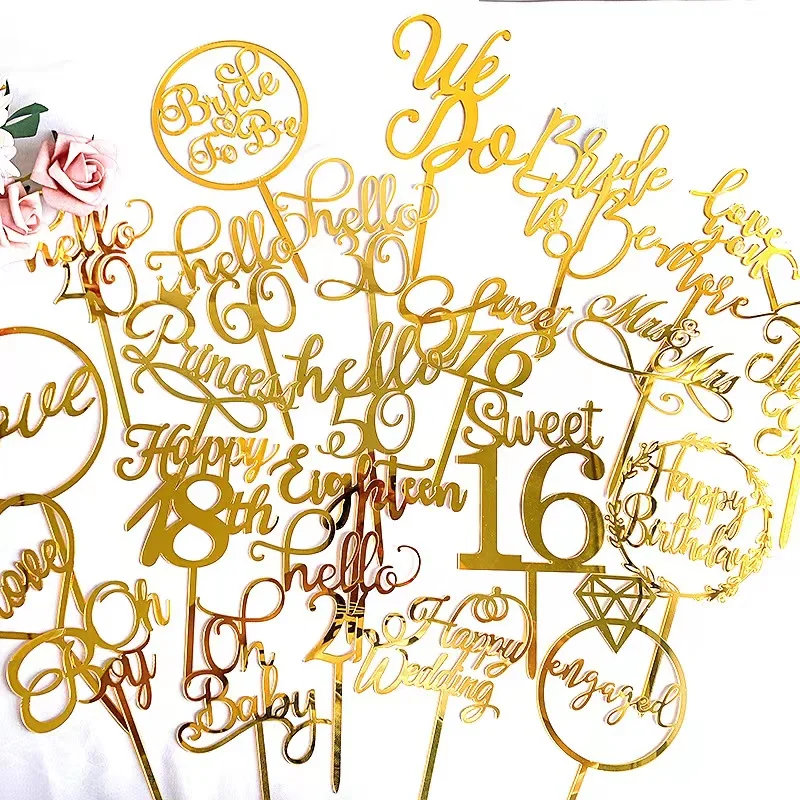 Bride
To Be
We
Do
Bride
to
Be
love
you
more
hello
40
hello
60
hello
30
Sweet
16
Mr & Mrs
Princess
hello
50
Love
Happy
18th
Eighteen
Sweet
16
Happy
Birthday
Love
Oh
Boy
Oh
Baby
hello
Happy
Wedding
engaged